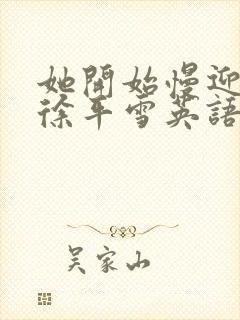 她開始慢迎
徐平雪英語
吴家山